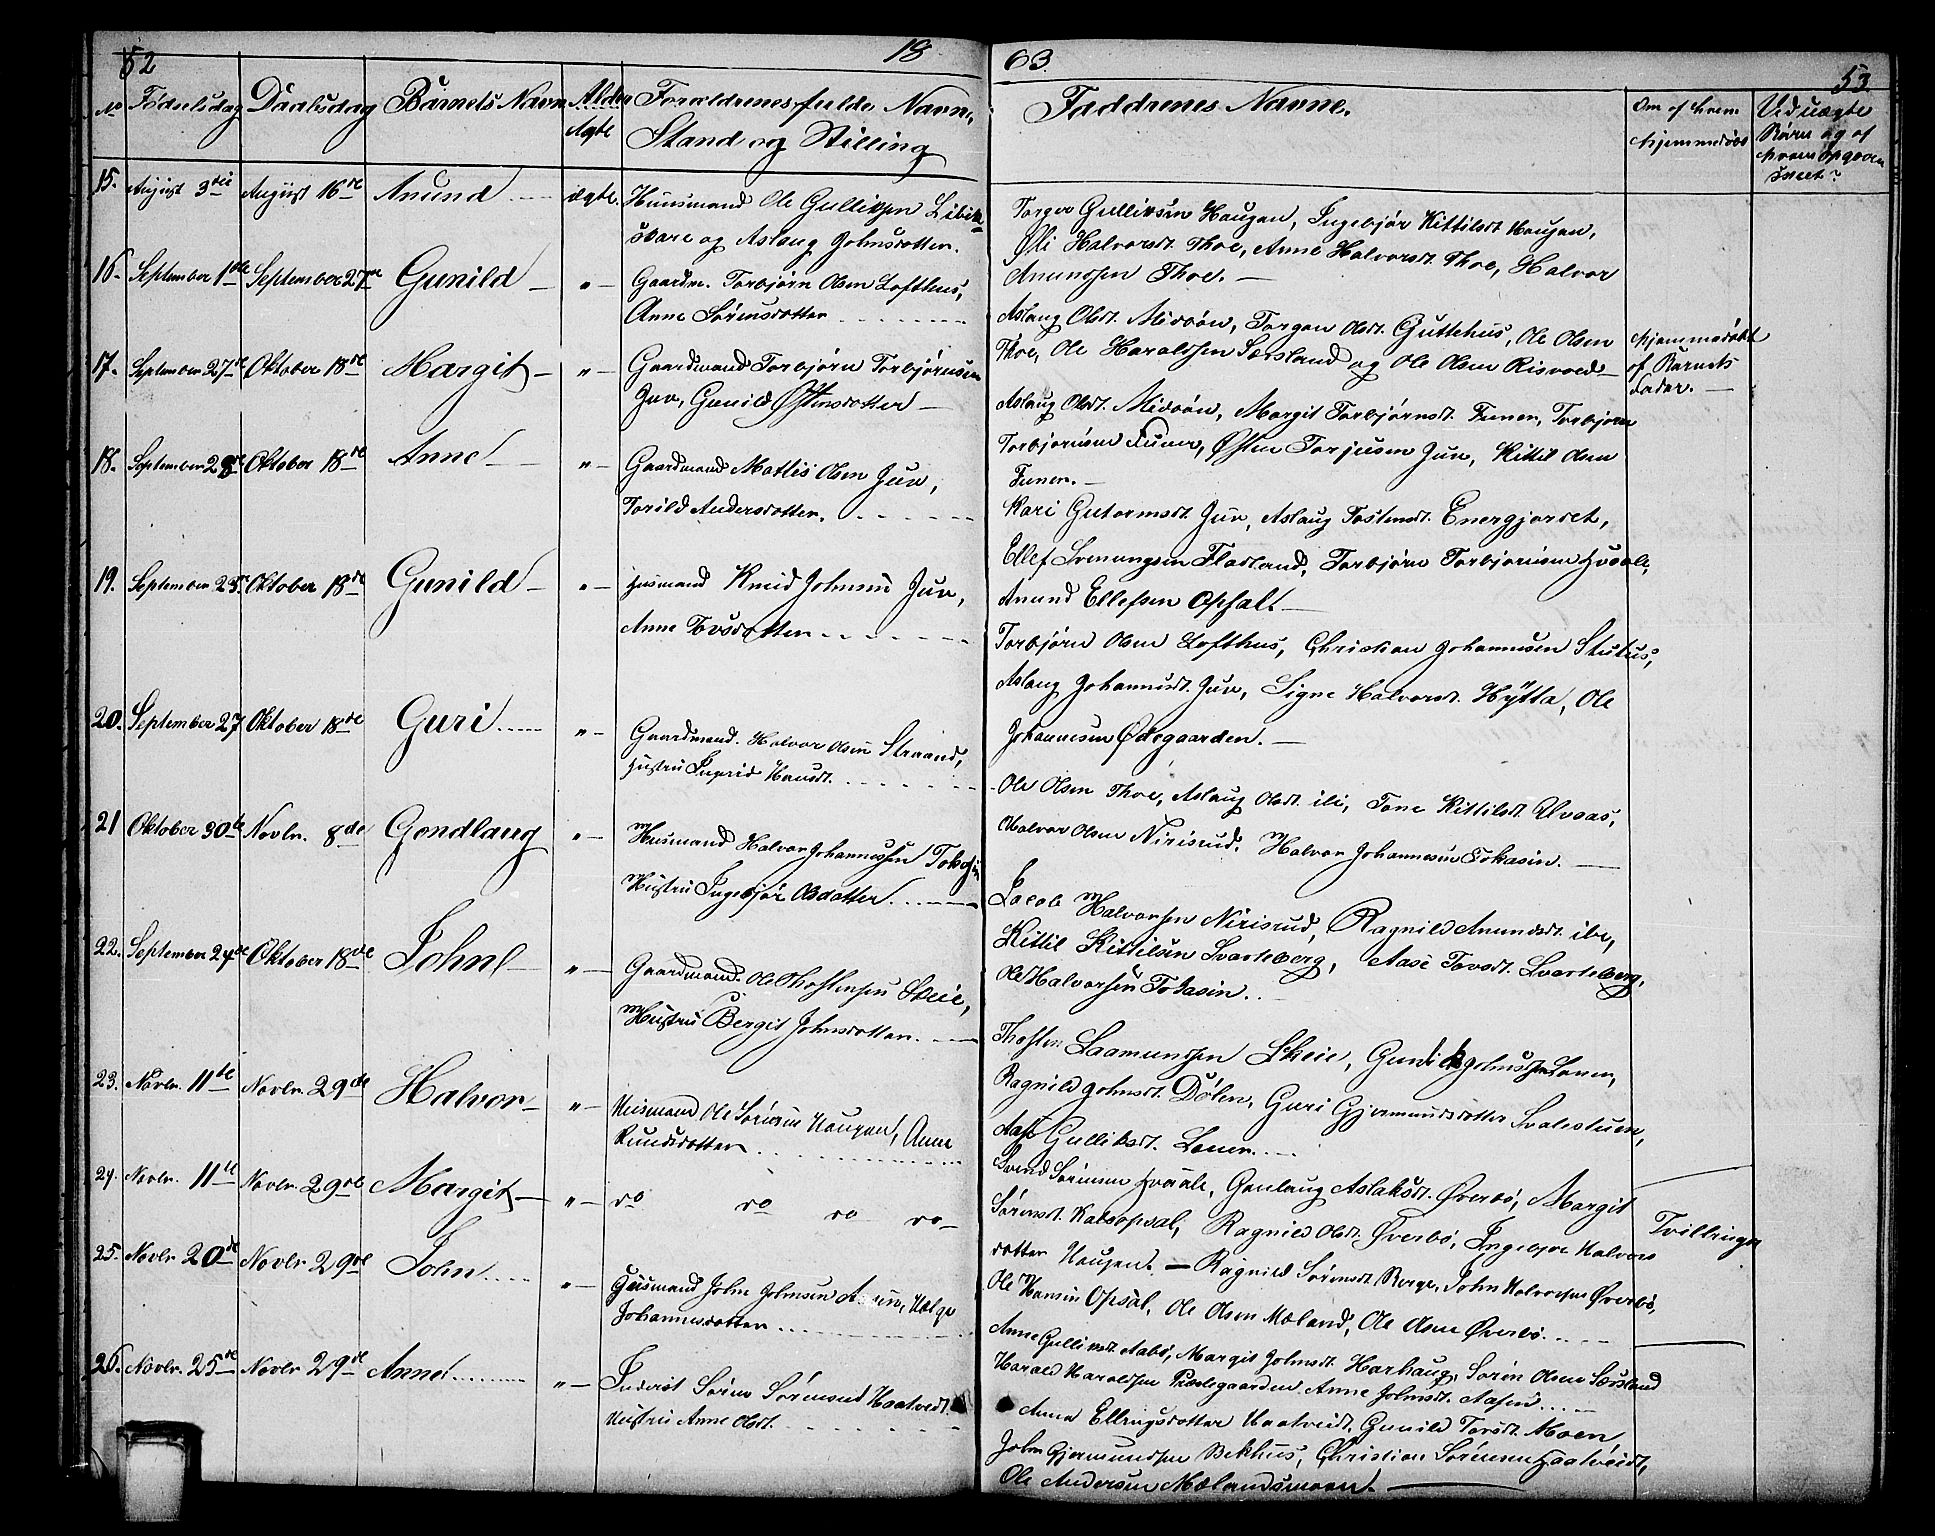 52
18
63
53
No Fødselsdag Daabsdag Barnets Navn Alder Forældrenes fulde Navn,
Ægte Stand og Stilling
Faddrenes Navne.
Om af hvem
hjemmedøbt
Ved uægte
Børn og af
hvem opgiven
15. August 3die August 16de Anund ægte. Huusmand Ole Gulliksen
og Aslaug Johnsdotter.
Torger Gulliksen Haugan, Ingebjør Kittilsdt. Haugan,
Halvorsdt. Thoe, Anne Halvorsdt. Thoe, Halvor
Anunssen Thoe. —
16. September 1ste September 27de Gunild — " — Gaardm. Torbjørn Olsen Lofthus,
Anne Sørensdotter
Aslaug Olsdt. Midbøn, Torgon Olsdt. Guttehus, Ole Olsen
Thoe, Ole Haraldssen Sæsland og Ole Olsen Risvold
hjemmedøbt
af Barnets
Fader. —
17. September 27de Oktober 18de Margit — " — Gaardmand Torbjørn Torbjørnsen
Juv, Gunild Østensdotter —
Aslaug Olsdt. Midbøn, Margit Torbjørnsdt. Funer, Torbjørn
Torbjørnsen Funer, Østen Torjusen Juv, Kittil Olsen
Funer. —
18. September 28de Oktober 18de Anne — " — Gaardmand Mattis Olsen Juv,
Torild Andersdotter.
Kari Gutormsdt. Juv, Aslaug Tostensdt. Energjordet,
Ellef Svenungsen Fladland, Torbjørn Torbjørnsen Hvaale,
Anund Ellefsen Opsalt —
19. September 25. Oktober 18de Gunild — " — Husmand Knud Johnsen Juv,
Anne Tovsdotter
Torbjørn Olsen Lofthus, Christian Johannesen Stuhus,
Aslaug Johannesdt. Juv, Signe Halvorsdt. Hytta, Ole
Johannesen Ødegaarden. —
20. September 27 Oktober 18de Guri " — Gaardmand. Halvor Olsen Straand,
Hustru Ingrid Hansdt.
Ole Olsen Thoe, Aslaug Olsdt. ibi, Tone Kittilsdt. Uvaas,
Halvor Olsen Nirisrud, Halvor Johannesen Tokasin. —
21 Oktober 30te Novbr. 8de Gondlaug " — Husmand Halvor Johannessen
Hustru Ingebjør Olsdatter
Jacob Halvorsen Nirisrud, Ragnild Anundsdt. ibi,
Kittil Kittilsen Svarteberg, Aase Tovsdt. Svarteberg,
Ole Halvorsen Tokasin.
22. September 24de Oktober 18de John — " — Gaardmand. Ole Thostensen Skeie,
Hustru Bergit Johnsdotter. —
Thosten Saamunssen Skeie,
Ragnild Johnsdt. Dølen, Guri Gjermundsdotter Svalestuen,
Gulliksdt. Loner.
23. Novbr. 11te Novbr. 29de Halvor — " — Husmand Ole Sørensen Haugan, Anne
Knudsdotter
Svend Sørensen Hvaale, Gonlaug Aslaksdt. Øverbø, Margit
Sørensdt. Ragnild Olsdt. Øverbø, Ingebjør Halvors
dotter Haugan. — Ragnild Sørensdt. Berge, John Halvorsen Øverbø,
Ole Hansen Opsal, Ole Olsen Mæland, Ole Olsen Øverbø.
24. Novbr. 11te Novbr. 29de Margit — " — do do do do —
Tvillinger
25. Novbr 20de Novbr 29de John " — Husmand John Johnsen Helge
Johannesdotter
Anne Gulliksdt. Aabø, Margit Johnsdt. Harhaug, Søren Olsen Sæsland
Harald Haroldsen Prestegaarden, Anne Johnsdt. Aasen
26. Novbr. 25de Novbr 29de Anne " — Inderst Søren Sørensen Haatvedt
Hustru Anne Olsdt.
Anne Ellingsdotter Haatveidt, Gunild Tovsdt. Moen
John Gjermundsen Bekhus, Christian Sørensen Haatveidt,
Ole Andersen Mælandsmoen —